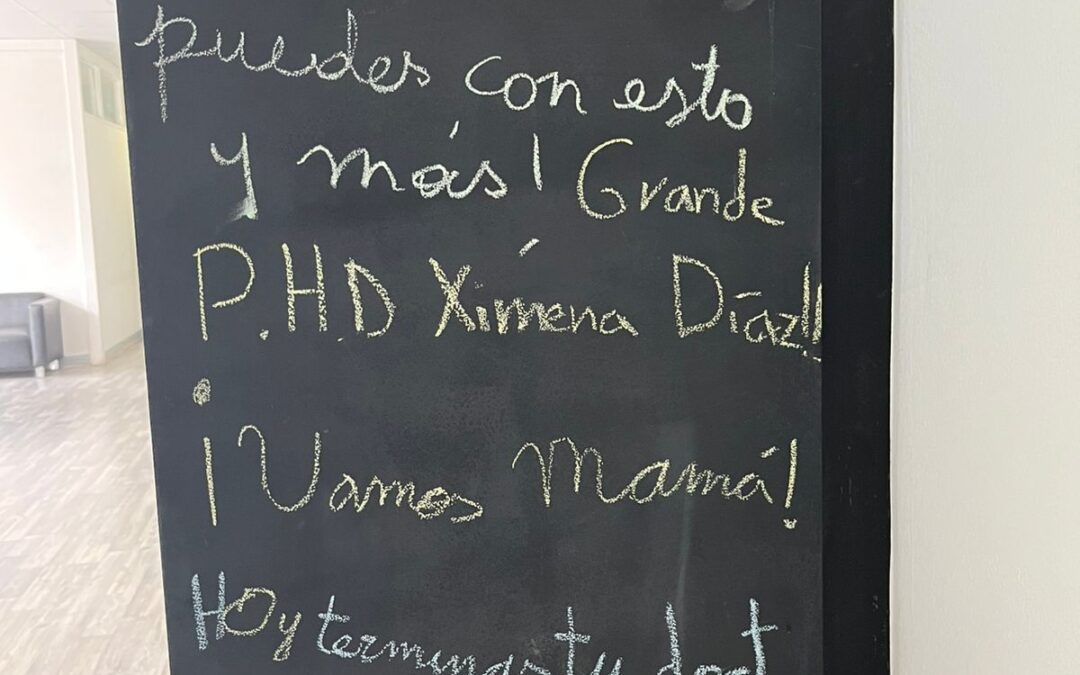 puedes con esto
y más! Grande
P.HD Xiména Díaz!!
¡Vamos Mamá!
Hoy terminas tu doct